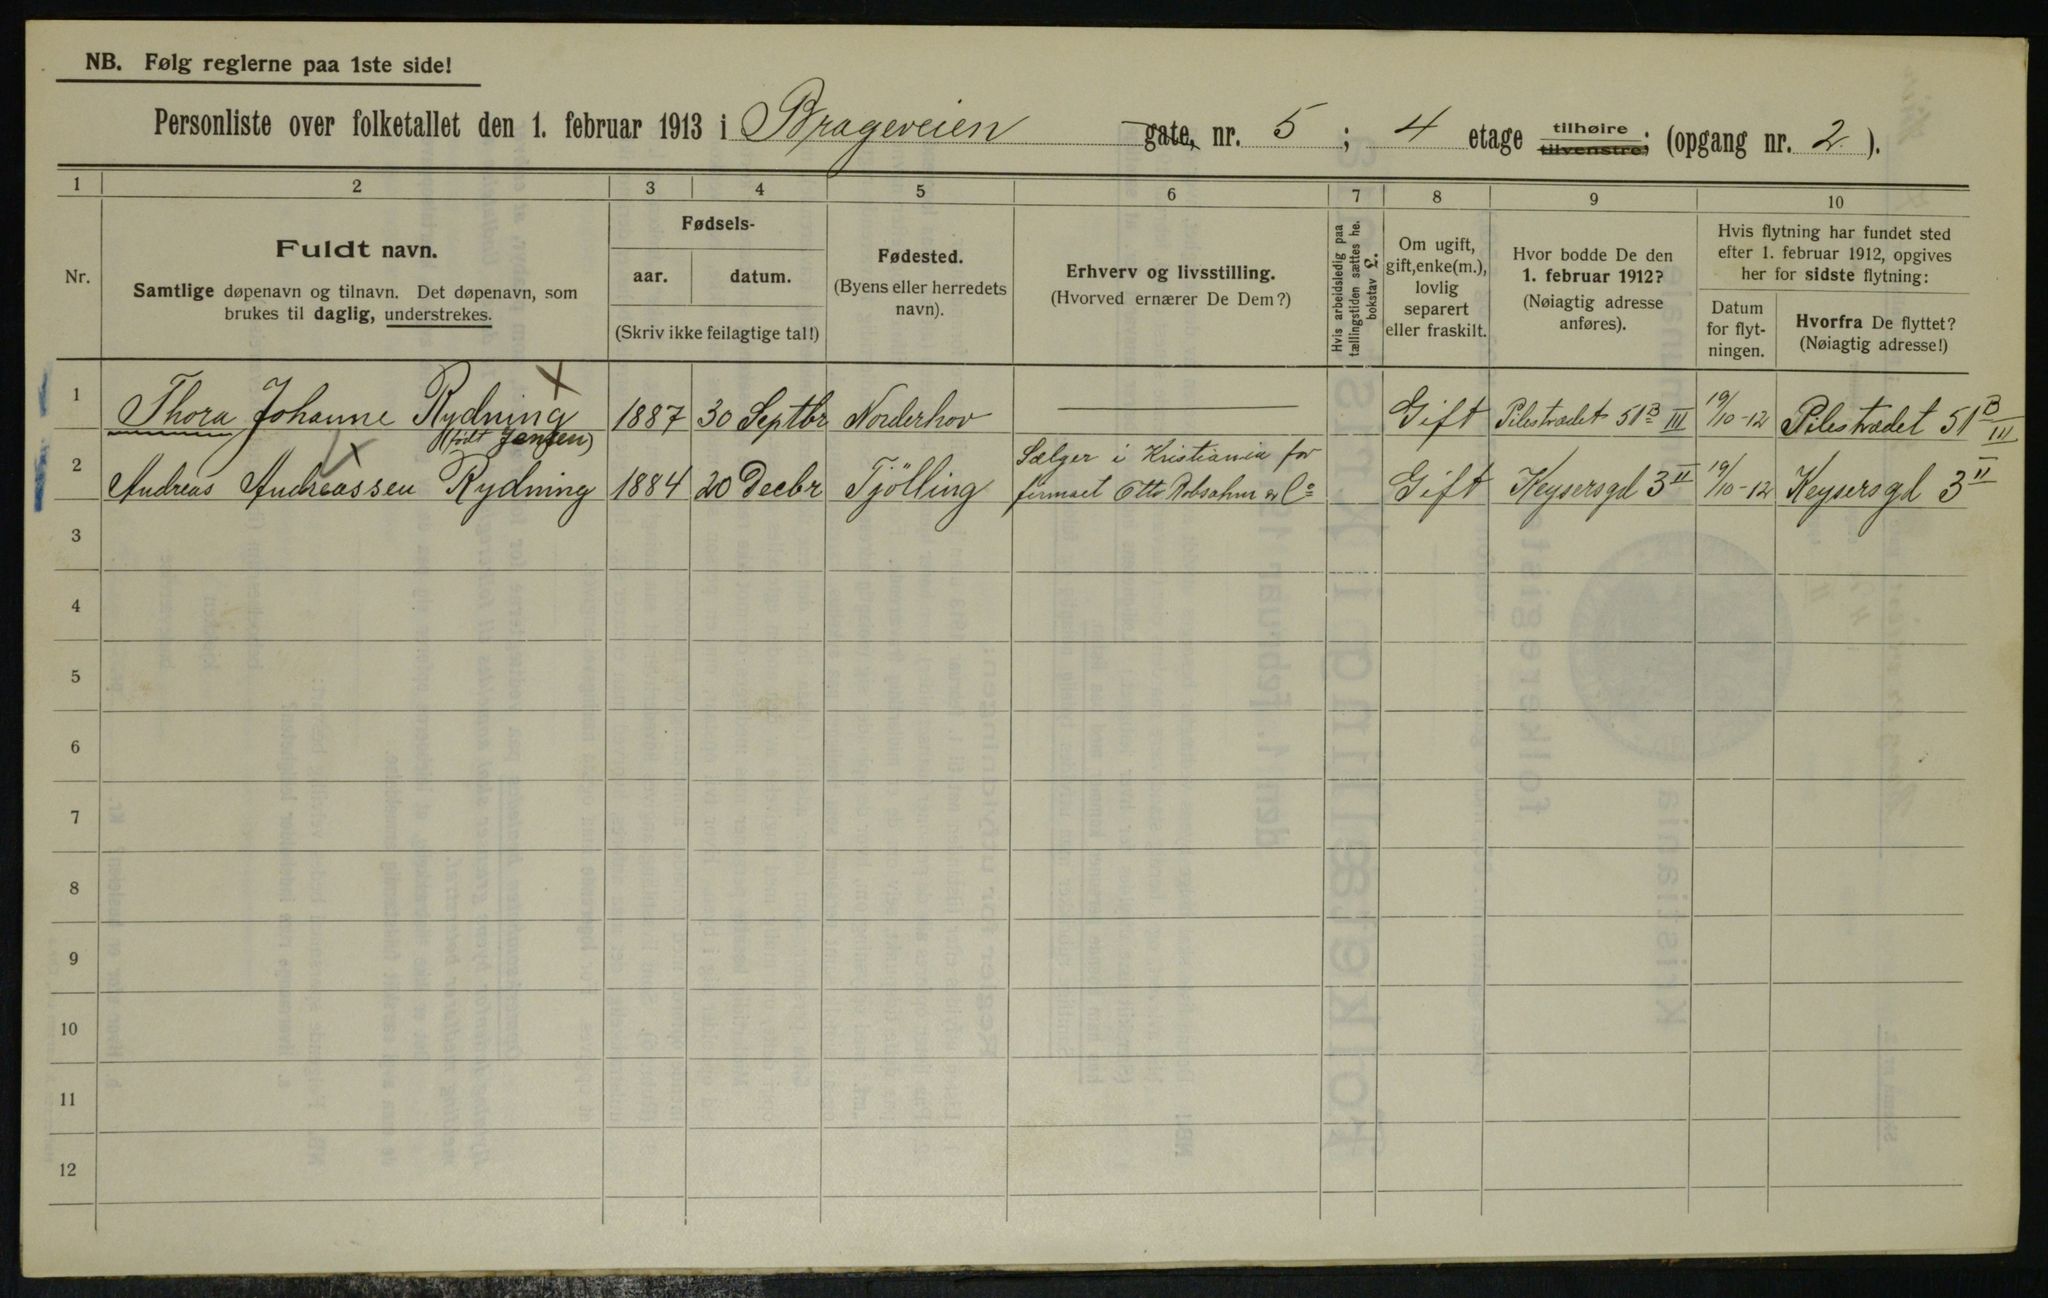 NB. Følg reglerne paa 1ste side!
Personliste over folketallet den 1. februar 1913 i Brageveien gate, nr. 5 ; 4 etage tilhøire tilvenstre; (opgang nr. 2 ).
1 2 3 4 5 6 7 8 9 10
Nr.
Fuldt navn.
Samtlige døpenavn og tilnavn. Det døpenavn, som
brukes til daglig, understrekes.
Fødsels-
aar. datum.
(Skriv ikke feilagtige tal!)
Fødested.
(Byens eller herredets
navn).
Erhverv og livsstilling.
(Hvorved ernærer De Dem?)
Hvis arbeidsledig paa
tællingstiden sættes he.
bokstav L.
Om ugift,
gift, enke(m.),
lovlig
separert
eller fraskilt.
Hvor bodde De den
1. februar 1912?
(Nøiagtig adresse
anføres).
Hvis flytning har fundet sted
efter 1. februar 1912, opgives
her for sidste flytning:
Datum
for flyt-
ningen.
Hvorfra De flyttet?
(Nøiagtig adresse!)
1 Thora Johanne Rydning 1887 30 Septbr Norderhov Gift Pilestrædet 51B III 19/10-12 Pilestrædet 51B III
(født Jensen)
2 Andreas Andreassen Rydning 1884 20 Decbr Tjölling Sælger i Kristiania for
firmaet Otto Robsahm & Co Gift Keysersgd 3 II 19/10-12 Keysersgd 3 II
3
4
5
6
7
8
9
10
11
12